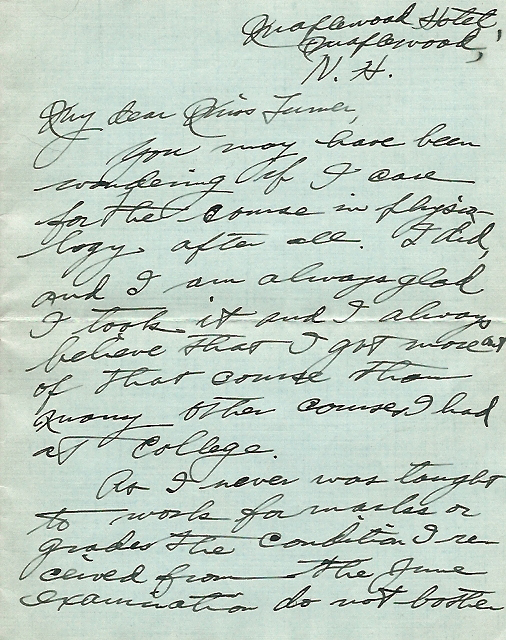 Maplewood Hotel,
Maplewood,
N. H.
My dear Miss Turner,
You may have been
wondering if I care
for the course in physio-
logy after all. I did,
and I am always glad
I took it and I always
believe that I got more out
of that course than
many other courses I had
at college.
As I never was taught
to work for marks or
grades the condition I re-
ceived from the June
examination do not bother